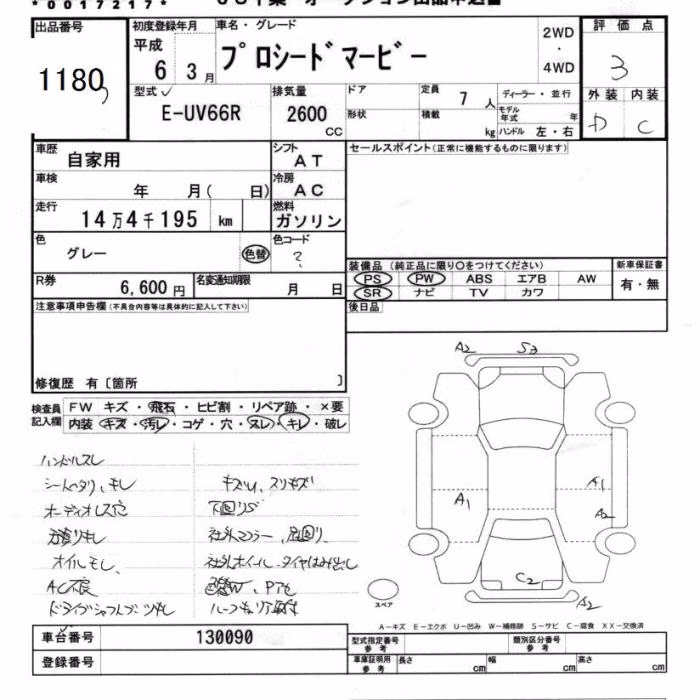 *0017217*
出品番号
1180
初度登録年月
平成
6 3月
車名・グレード
プロシードマービー
2WD
・
4WD
評価点
3
型式
E-UV66R
排気量
2600
CC
ドア
形状
定員
7人
積載
kg
ディーラー・並行
モデル
年式
年
ハンドル 左・右
外装 内装
D C
車歴
自家用
シフト
AT
セールスポイント(正常に機能するものに限ります)
車検
年 月( 日)
冷房
AC
走行
14万4千195 km
燃料
ガソリン
色
グレー
色替
色コード
?
装備品(純正品に限り○をつけてください)
PS PW ABS エアB AW
SR ナビ TV カワ
新車保証書
有・無
R券
6,600円
名変通知期限
月 日
後日品
注意事項申告欄(不具合内容等は具体的に記入して下さい)
修復歴 有〔箇所 〕
検査員
記入欄
FW キズ・飛石・ヒビ割・リペア跡・×要
内装 キズ・汚レ・コゲ・穴・スレ・キレ・破レ
ハンドルスレ
キズU、スリキズ
オーディオレス穴
下回りS
社外マフラー、足回り
オイルモレ、
社外ホイール・タイヤはみ出し
AC不良
ドライブシャフトブーツキレ
A2 S3
A1
A1
A2
C2
A2
スペア
A-キズ E-エクボ U-凹み W-補修跡 S-サビ C-腐食 XX-交換済
車台番号
130090
登録番号
型式指定番号
参考
類別区分番号
参考
車庫証明用
参考
長さ cm
幅 cm
高さ cm